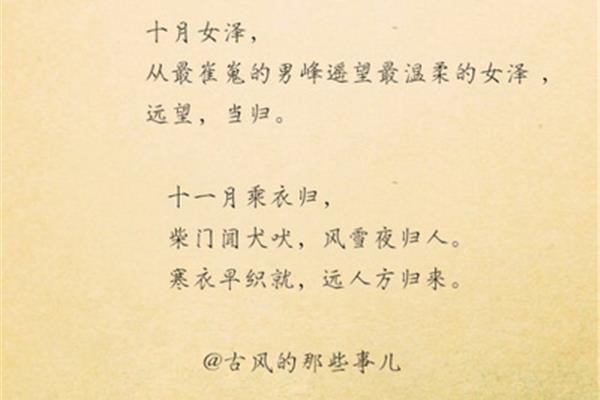 十月女泽，
从最崔嵬的男峰遥望最温柔的女泽，
远望，当归。
十一月乘衣归，
柴门闻犬吠，风雪夜归人。
寒衣早织就，远人方归来。
@古风的那些事儿